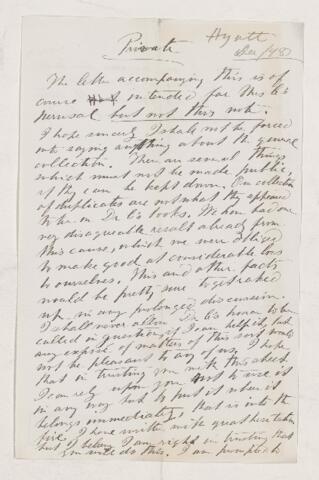 Hyatt
Private
Dec /78
The letter accompanying this is of
course intended for this
perusal but not this note.
I hope sincerely I shall not be forced
into saying anything about the general
collection. There are several things
which must not be made public,
if they can be kept down. Our collection
of duplicates are not what they appeared
to be on Dr. 's books. We have had one
very disagreeable result already from
this cause, which we were obliged
to make good at considerable loss
to ourselves. This and other facts
would be pretty sure to get raked
up in any prolonged discussion.
I shall never allow Dr. 's honor to be
called in question if I can help it, but
any exposé of matters of this sort would
not be pleasant to any of us. I hope
that in trusting you with this sheet
I can rely upon you not to use it
in any way but to put it where it
belongs immediately, that is into the
fire. I have written with great hesitation
but I believe I am right in trusting that
you will do this. I am